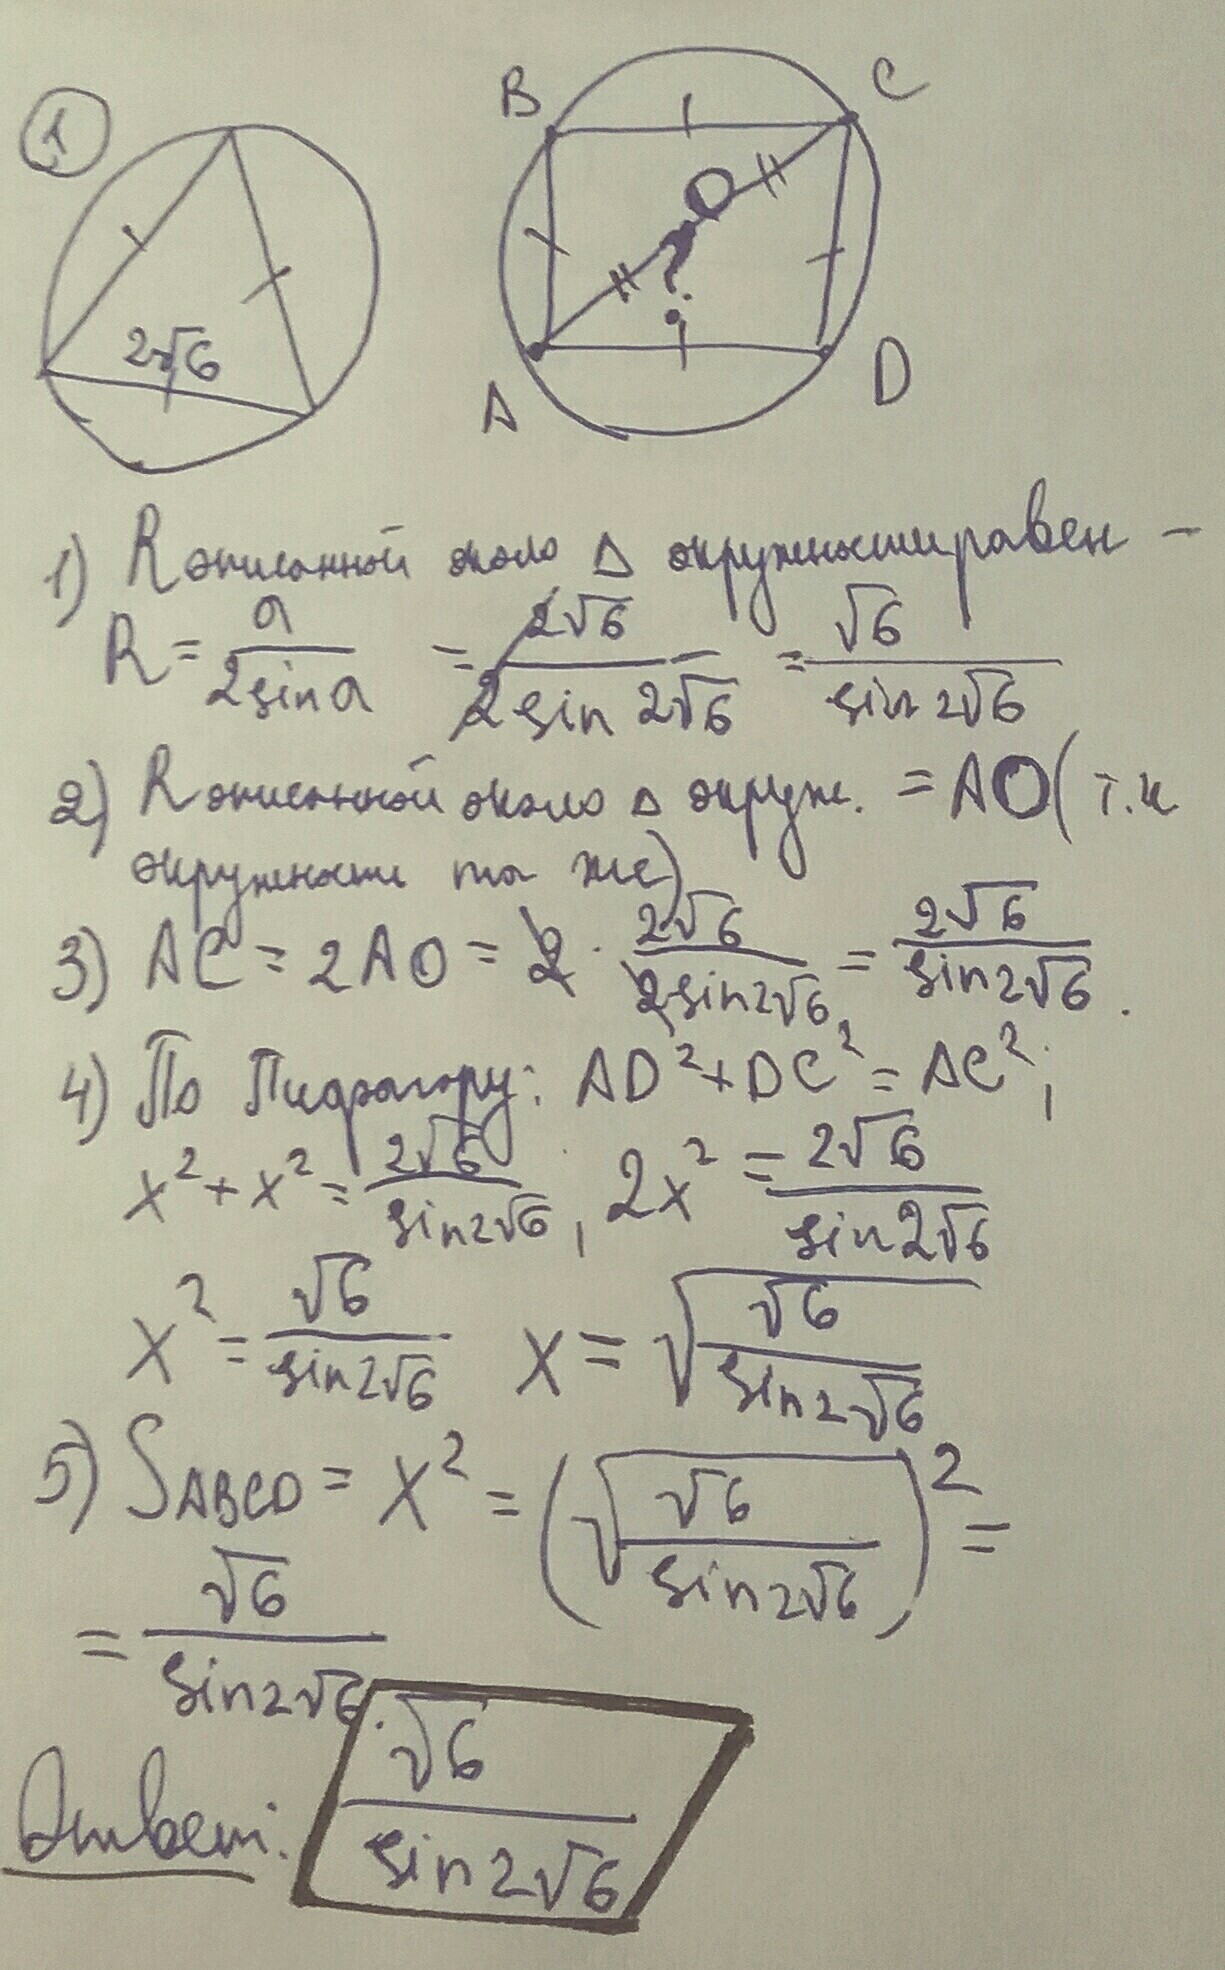 1
B C
O
?
2√6
A D
1) R описанной около Δ окружности равен –
R = a/(2sin a) = 2√6/(2sin 2√6) = √6/(sin 2√6)
2) R описанной около Δ окруж. = AO (т.к
окружности та же)
3) AC = 2AO = 2 · 2√6/(2sin2√6) = 2√6/(sin2√6).
4) По Пифагору: AD² + DC² = AC²;
x² + x² = 2√6/(sin2√6), 2x² = 2√6/(sin2√6)
x² = √6/(sin2√6) x = √(√6/(sin2√6))
5) SABCD = x² = (√(√6/(sin2√6)))² =
= √6/(sin2√6).
Ответ: √6/(sin2√6)